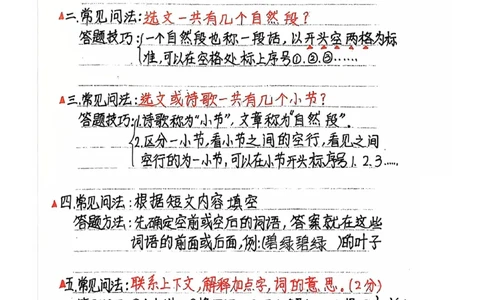 ▲二.常见问法:选文一共有几个自然段?
答题技巧:一个自然段也称一段话,以开头空两格为标
准,可以在空格处标上序号①.②.③……
▲三.常见问法:选文或诗歌一共有几个小节?
答题技巧:1.诗歌称为“小节”,文章称为“自然段”.
2.区分一小节,看小节之间的空行,看见之间
空行的为一小节,可以在小节开头标序号1.2.3……
▲四.常见问法:根据短文内容填空
答题方法:先确定空前或空后的词语,答案就在这些
词语的前面或后面,例:(碧绿碧绿 )的叶子
▲五.常见问法:联系上下文,解释加点字,词的意思。(2分)